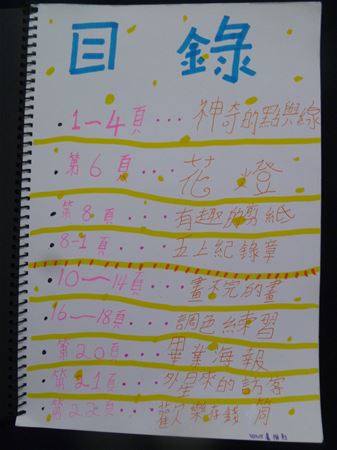 目錄
1~4頁...神奇的點與線
第6頁...花燈
第8頁...有趣的剪紙
8-1頁...五上紀錄章
10~14頁...畫不完的畫
16~18頁...調色練習
第20頁...畢業海報
第21頁...外星來的訪客
第22頁...歡樂存錢筒